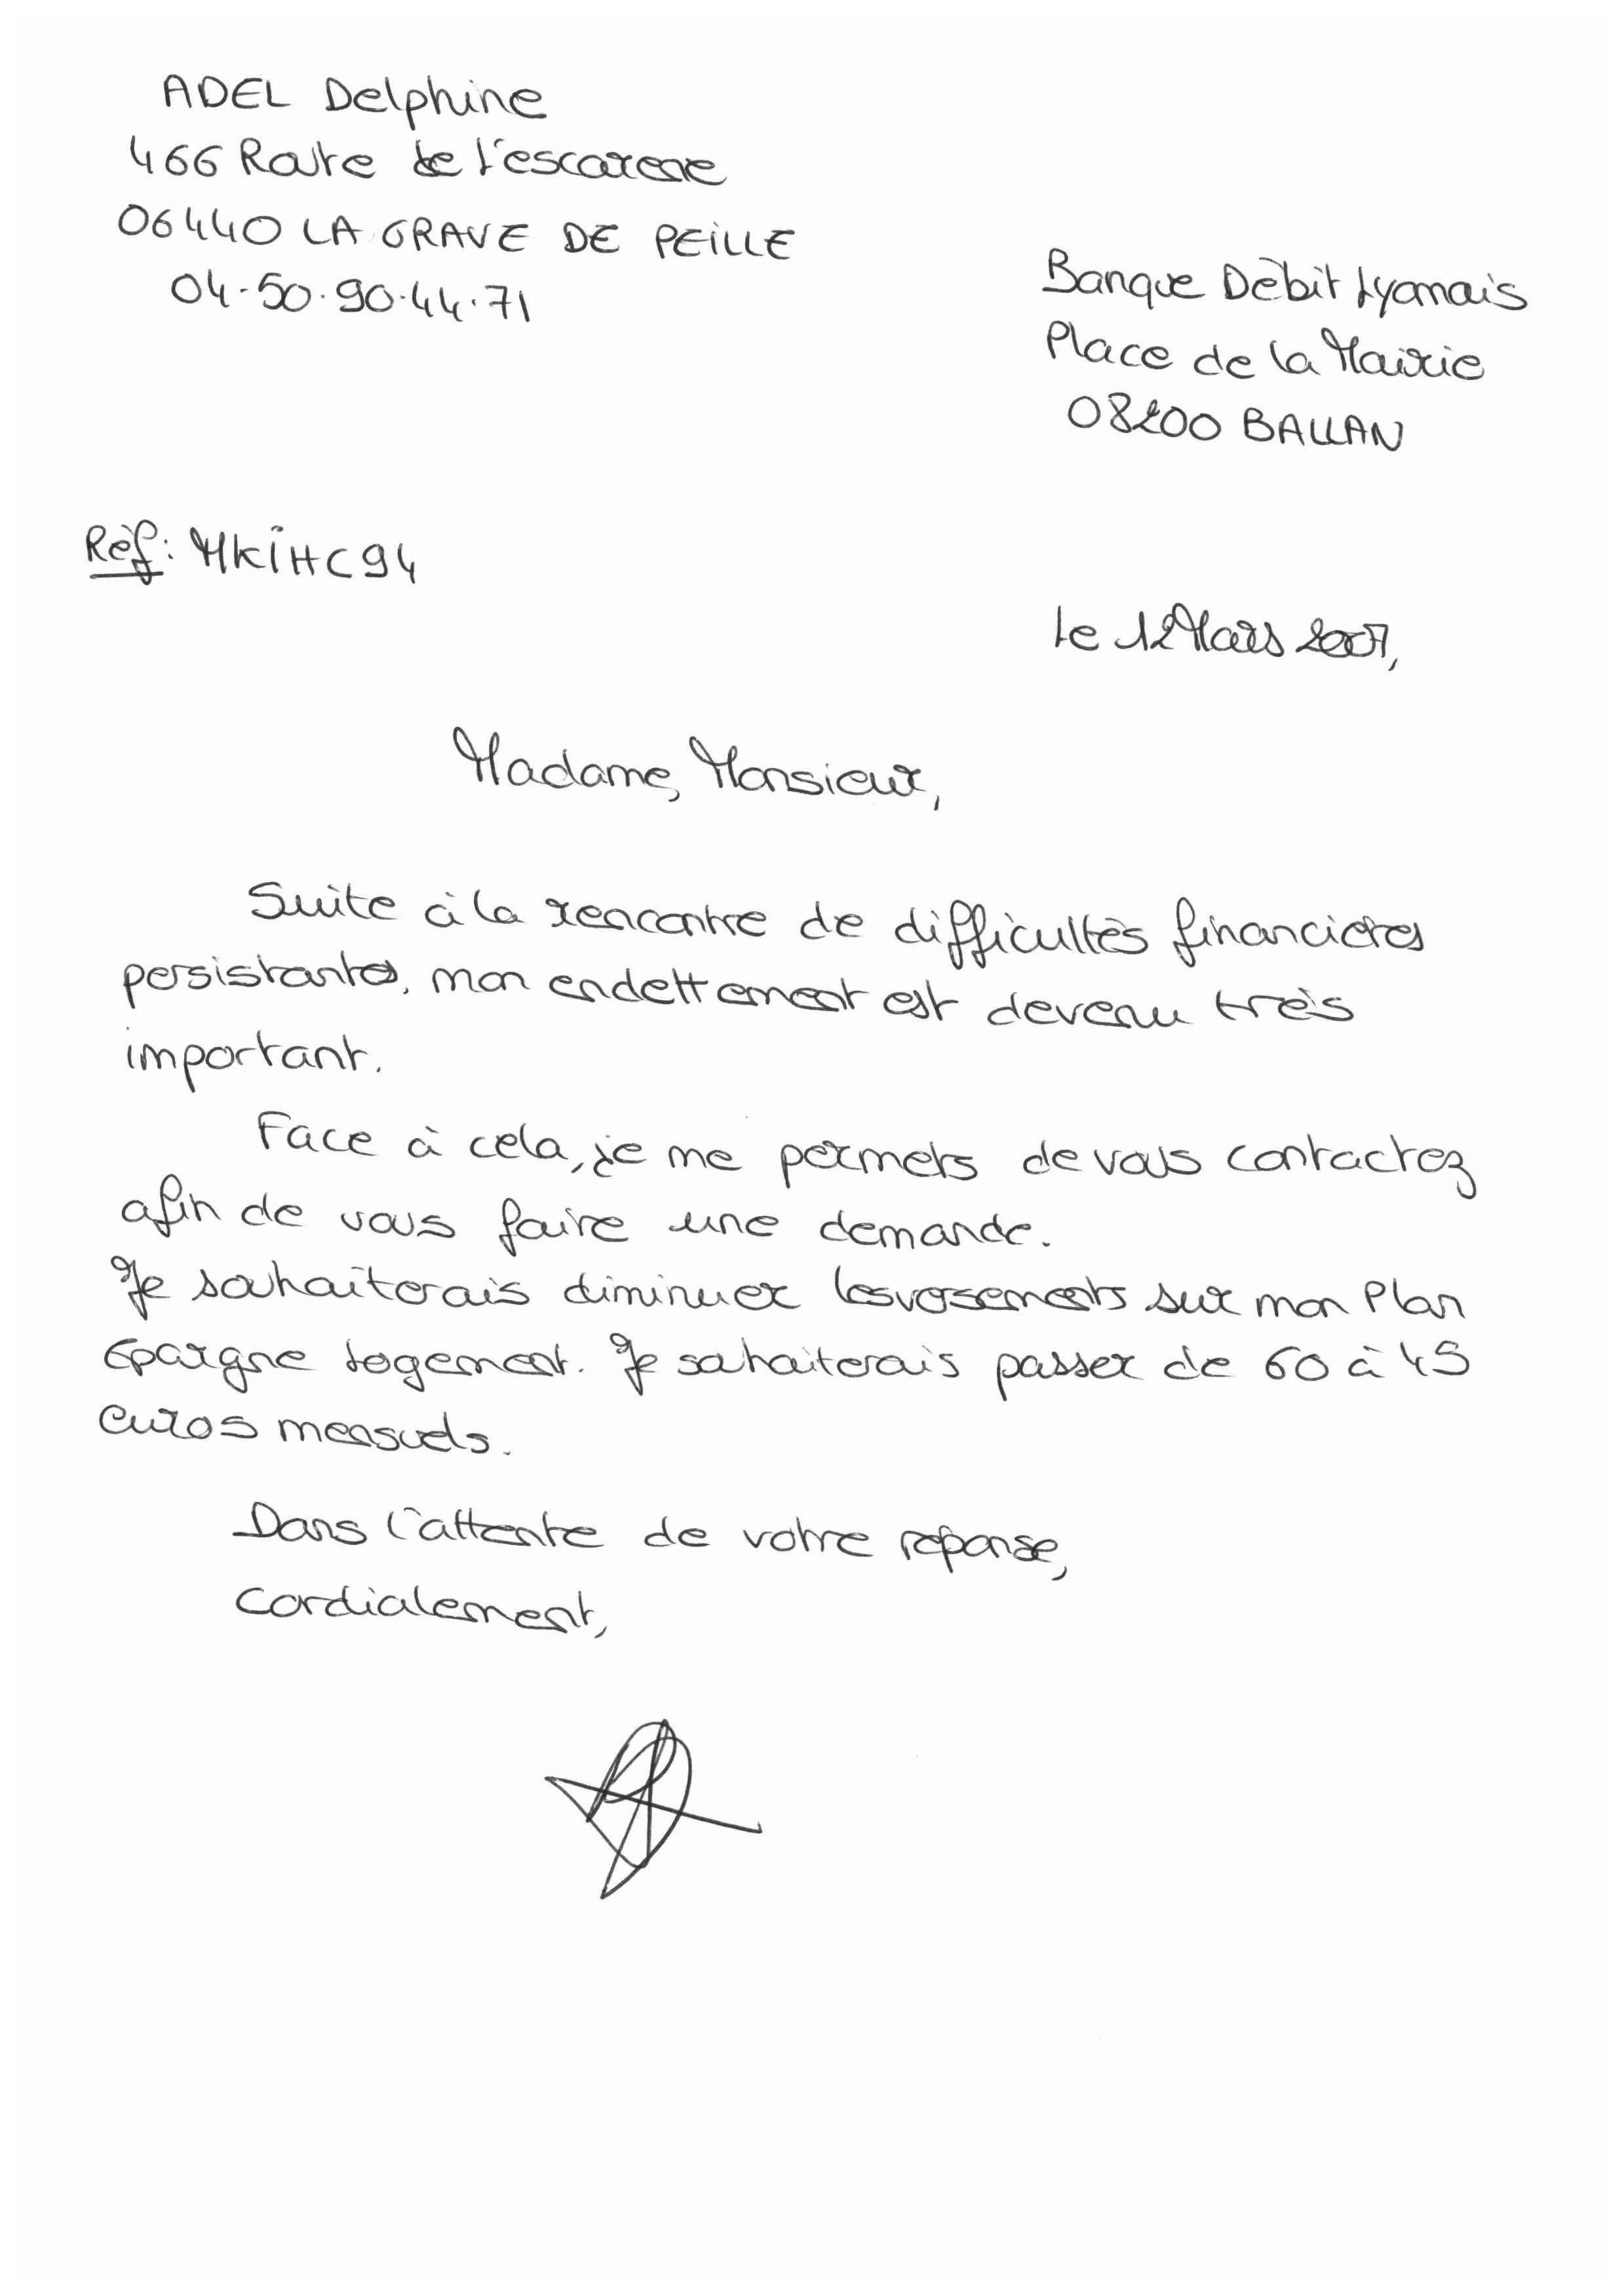 ADEL Delphine
466 Route de l'escarene
06440 LA GRAVE DE PEILLE
04.50.90.44.71
Banque Débit Lyonnais
Place de la Mairie
08200 BALLAN
Réf: MKIHC94
Le 12 Mars 2007,
Madame, Monsieur,
Suite à la rencontre de difficultés financières
persistantes, mon endettement est devenu très
important.
Face à cela, je me permets de vous contactez
afin de vous faire une demande.
Je souhaiterais diminuer les versements sur mon Plan
Epargne Logement. Je souhaiterais passer de 60 à 45
euros mensuels.
Dans l'attente de votre réponse,
Cordialement,